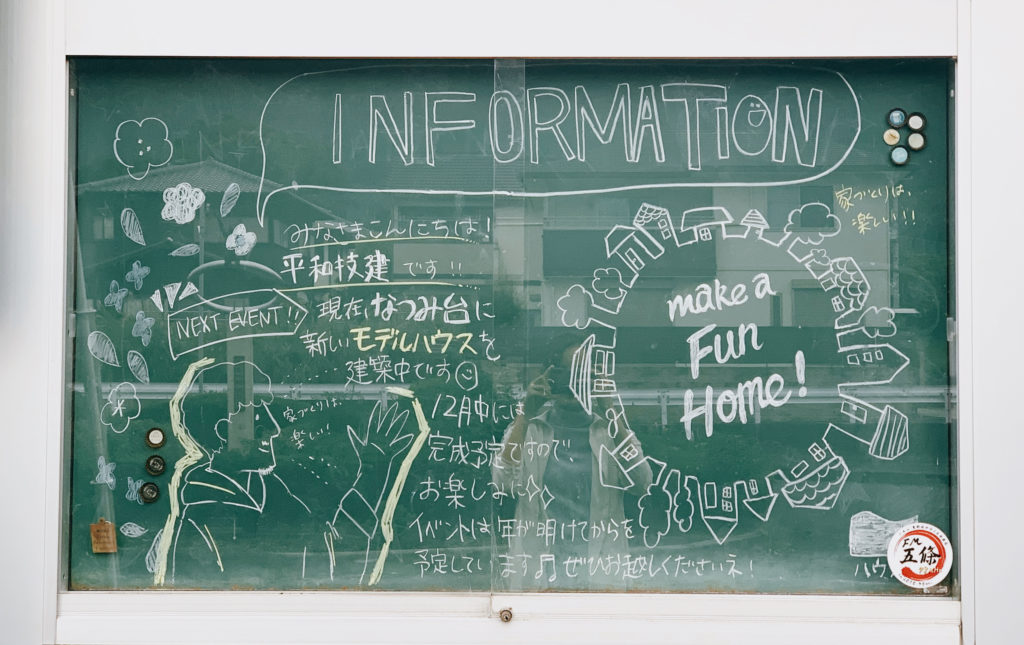 INFORMATION
家づくりは、
楽しい!!
みなさまこんにちは!
平和技建です!!
NEXT EVENT!!
現在、なつみ台に
新しいモデルハウスを
建築中です
家づくりは、
楽しい!
12月中には
完成予定ですので、
お楽しみに
イベントは年が明けてからを
予定しています♫ぜひお越しくださいネ!
make a
Fun
Home!
FM
五條
ハウ